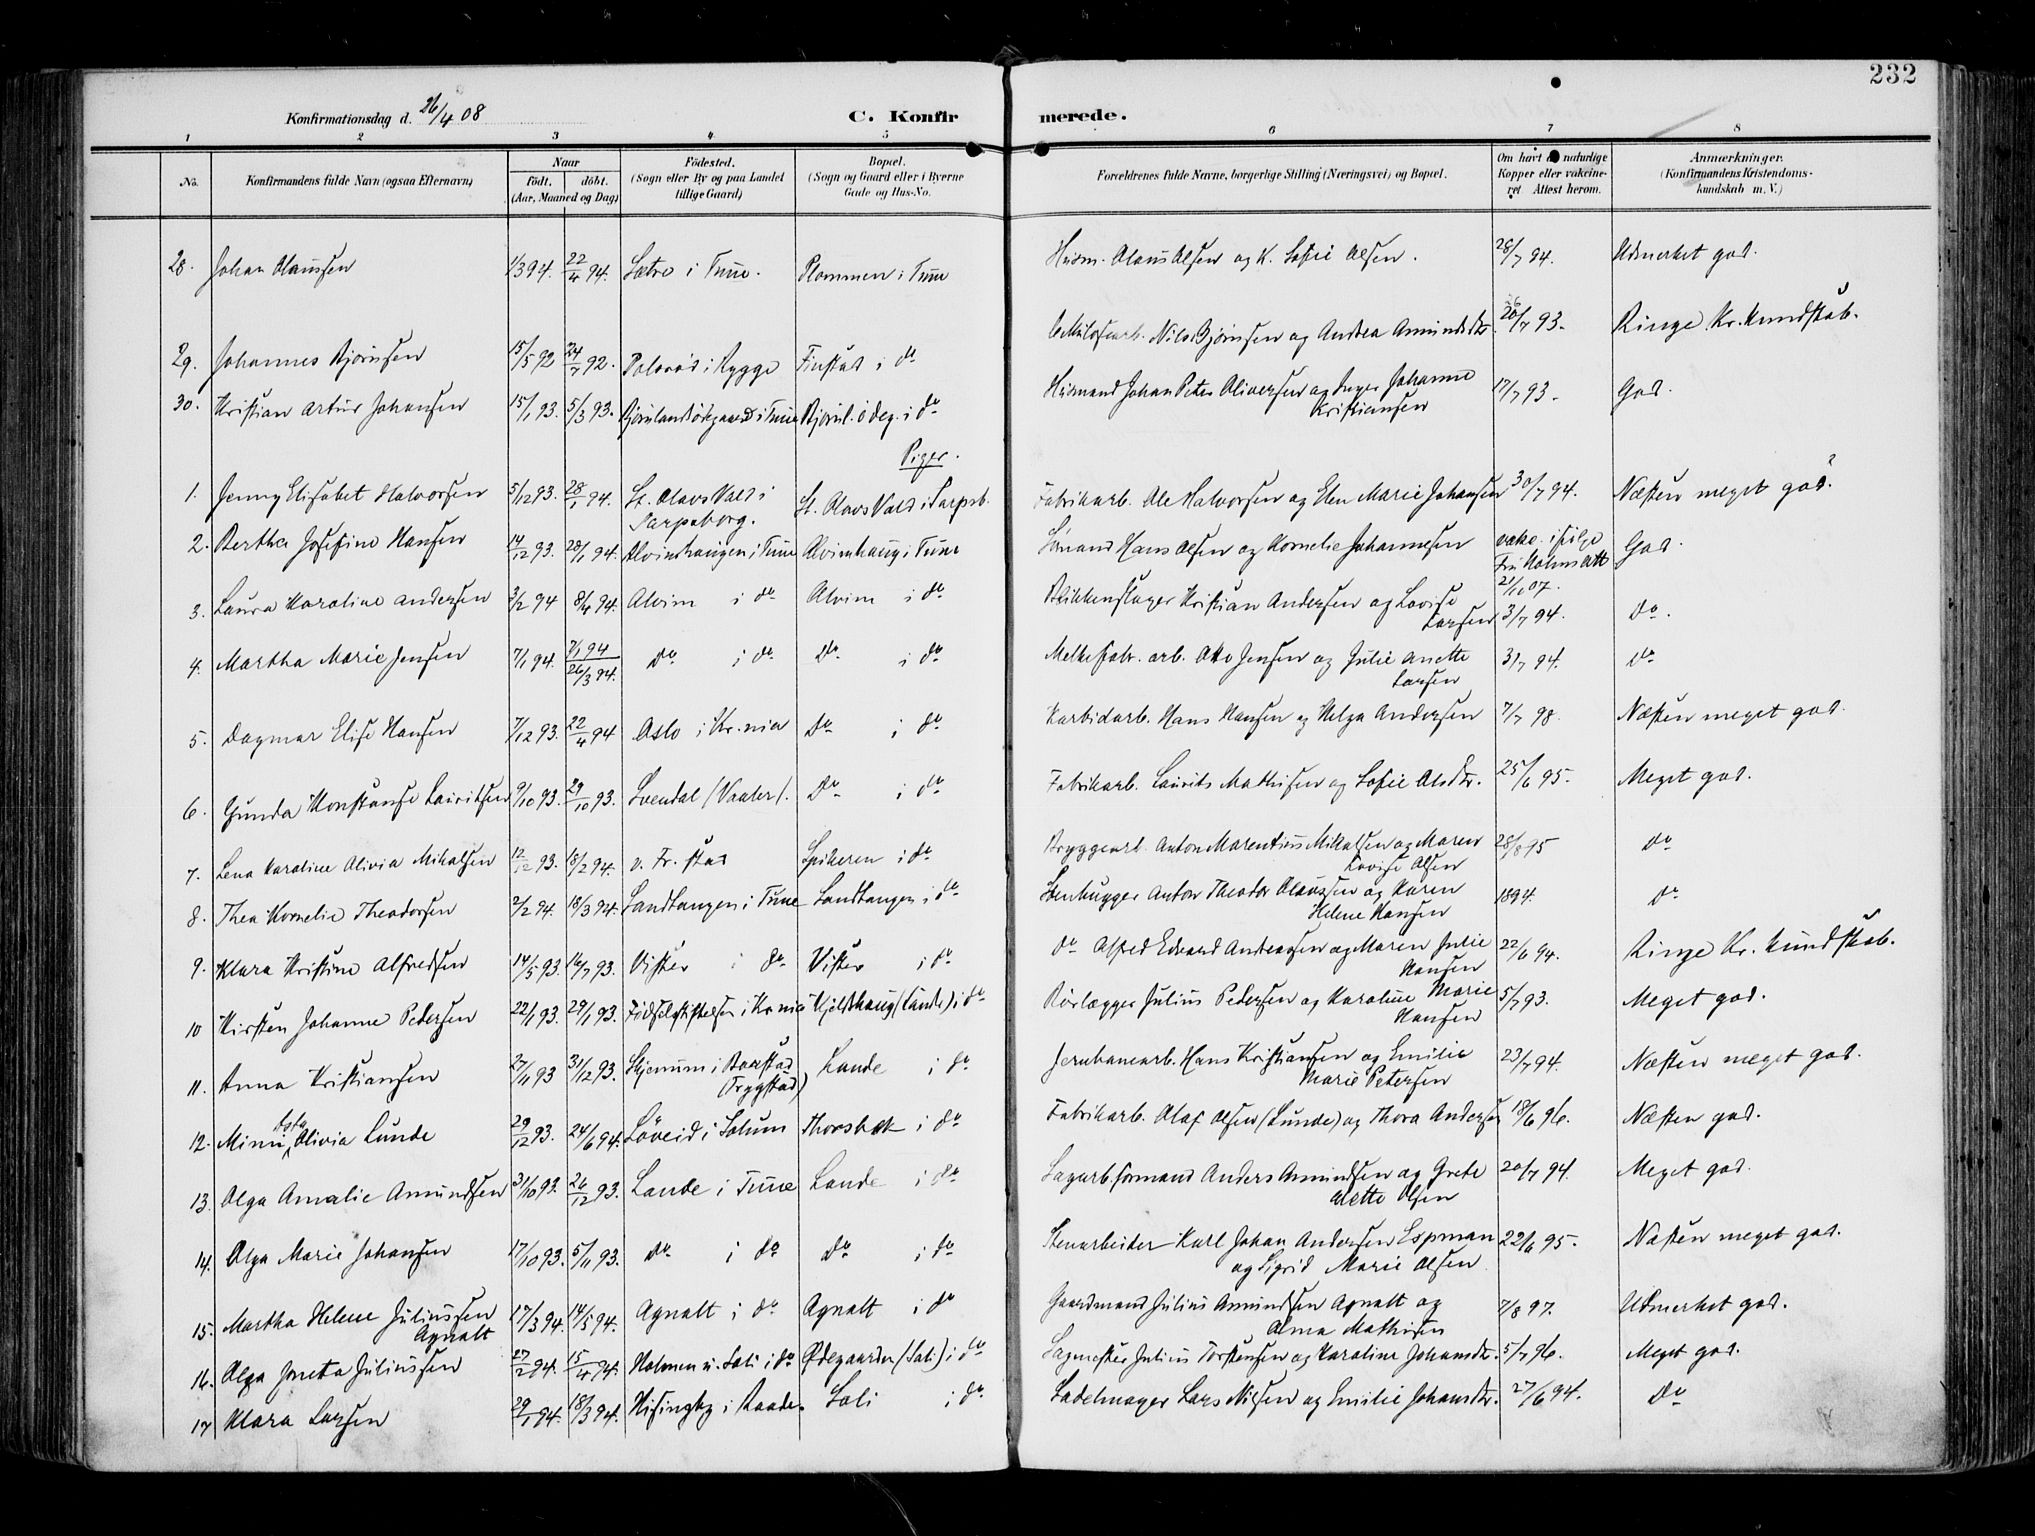 232
Konfirmationsdag d. 26/4 08 C. Konfirmerede.
1 2 3 4 5 6 7 8
No. Konfirmandens fulde Navn (ogsaa Efternavn) Naar födt. döbt. (Aar, Maaned og Dag) Födested. (Sogn eller By og paa Landet tillige Gaard) Bopæl. (Sogn og Gaard eller i Byerne Gade og Hus-No. Forældrenes fulde Navne, borgerlige Stilling (Næringsvei) og Bopæl. Om havt de naturlige Kopper eller vakcineret. Attest herom. Anmærkninger. (Konfirmandens Kristendomskundskab m. V.)
28. Johan Olaussen 1/3 94. 22/4 94. Sætre i Tune. Plommen i Tune Husm. Olaus Olsen og K. Sofie Olsen. 28/7 94. Udmerket god.
29. Johannes Bjørnsen 15/5 92 24/7 92. i Rygge Finstad i do Nils Bjørnsen og Andrea Amundsdtr. 26/7 93. Ringe Kr. Kundskab.
30. Kristian Artur Johansen 15/1 93. 5/3 93. Bjørnlandødegaard i Tune Bjørnl. ødeg. i do Husmand Johan Peter Oliversen og Inger Johanne Kristiansen 17/7 93. God.
Piger.
1. Jenny Elisabet Halvorsen 5/12 93. 28/1 94. St. Olavs Vold i Sarpsborg. St. Olavs Vold i Sarpsb. Fabrikarb. Ole Halvorsen og Elen Marie Johansen 30/7 94. Næsten meget god.
2. Bertha Josefine Hansen 14/12 93. 28/1 94. Alvimhaugen i Tune Alvimhaug i Tune Hans Olsen og Kornelie Johannesen vakc. ifølge Holms Att 2/11 07. God.
3. Laura Karoline Andersen 3/2 94 8/4 94. Alvim i do Alvim i do Blikkenslager Kristian Andersen og Lovise Larsen 3/7 94. do.
4. Martha Marie Jensen 7/1 94. 7/1 94 26/3 94. do i do Do. i do Melkefabr. arb. Otto Jensen og Julie Anette Larsen 3/7 94. do
5. Dagmar Elise Hansen 7/12 93. 22/4 94 Oslo i Kr.nia Do i do Karbidarb. Hans Hansen og Helga Andersen 7/7 98. Næsten meget god.
6. Gunda Konstanse Lauritsen 9/10 93. 29/10 93. Svendal (Vaaler). Do i do Fabrikarb. Laurits Mathisen og Sofie Olsdtr. 25/6 95. Meget god.
7. Lena Karoline Olivia Mikalsen 12/12 93. 18/2 94. v. Fr.stad Spikeren i do Bryggearb. Anton Marentius Mikalsen og Maren Lovise Olsen 28/8 95 do
8. Thea Kornelie Theodorsen 2/2 94. 18/3 94. Sandtangen i Tune Sandtangen i do Stenhugger Anton Theodor Olaussen og Karen Helene Hansen 1894. do
9. Klara Kristine Alfredsen 14/5 93. 16/7 93. Vister i do. Vister i do do Alfred Edvard Andreassen og Maren Julie Hansen 22/6 94. Ringe Kr. Kundskab.
10 Kirsten Johanne Pedersen 22/1 93. 29/1 93. Fødselsstiftelsen i Kr.nia Kjeldshaug (Lande) i do Rørlægger Julius Pedersen og Karoline Marie Hansen 5/7 93. Meget god.
11. Anna Kristiansen 27/11 93 31/12 93. Skjenum i Baastad (Trygstad) Lande i do Jernbanearb. Hans Kristiansen og Emilie Marie Petersen 23/7 94. Næsten meget god.
12. Minni Asta Olivia Lunde 29/12 93. 24/6 94. Løveid i Solum Thorsbæk i do Fabrikarb. Olaf Olsen (Lunde) og Thora Andersen 18/6 96. Næsten god.
13. Olga Amalie Amundsen 31/10 93. 26/12 93. Lande i Tune Lande i do Sagarb. formand Anders Amundsen og Grete Alette Olsen 20/7 94. Meget god.
14. Olga Marie Johansen 17/10 93. 5/11 93. do i do do i do Stenarbeider Karl Johan Andersen Espman og Sigrid Marie Olsen 22/6 95. Næsten meget god.
15. Martha Helene Juliussen Agnalt 17/3 94. 14/5 94. Agnalt i do Agnalt i do Gaardmand Julius Amundsen Agnalt og Alma Mathisen 7/8 97. Udmerket god.
16. Olga Juneta Juliussen 27/2 94. 15/4 94. Holmen u. Soli i do Ødegaarden (Soli) i do Sagmester Julius Torstensen og Karoline Johansdtr. 5/7 96. Meget god.
17 Klara Larsen 29/1 94. 18/3 94. Kisingby i Raade. Soli i do Sadelmager Lars Nilsen og Emilie Johansdtr. 27/6 94. Do